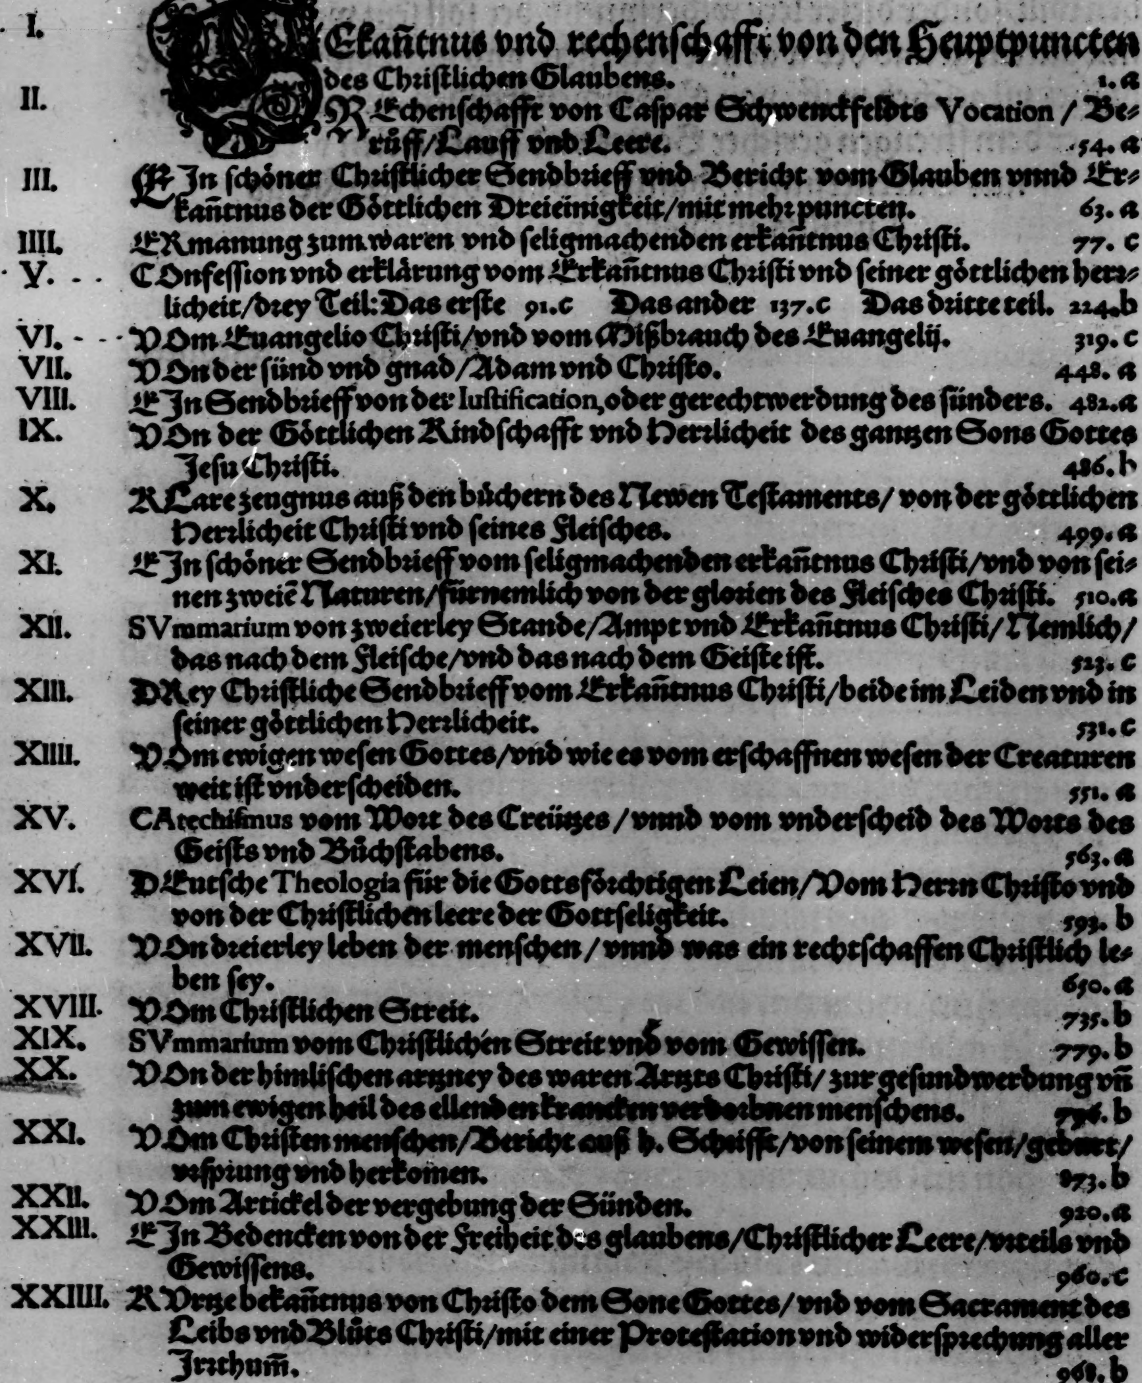 I. BEkañtnus vnd rechenschafft von den Heuptpuncten
des Christlichen Glaubens. 1. a
II. REchenschafft von Caspar Schwenckfeldts Vocation / Be-
růff/Lauff vnd Leere. 54. a
III. EIn schöner Christlicher Sendbrieff vnd Bericht vom Glauben vnnd Er-
kañtnus der Göttlichen Dreieinigkeit/mit mehr puncten. 63. a
IIII. ERmanung zum waren vnd seligmachenden erkañtnus Christi. 77. c
V. COnfession vnd erklärung vom Erkañtnus Christi vnd seiner göttlichen herr-
licheit/drey Teil: Das erste 91. c Das ander 137. c Das dritte teil. 224. b
VI. VOm Euangelio Christi/vnd vom Mißbrauch des Euangelij. 319. c
VII. VOn der sünd vnd gnad/Adam vnd Christo. 448. a
VIII. EIn Sendbrieff von der Iustification, oder gerechtwerdung des sünders. 482. a
IX. VOn der Göttlichen Kindschafft vnd Herrlicheit des gantzen Sons Gottes
Jesu Christi. 486. b
X. KLare zeugnus auß den büchern des Newen Testaments/ von der göttlichen
Herrlicheit Christi vnd seines Fleisches. 499. a
XI. EIn schöner Sendbrieff vom seligmachenden erkañtnus Christi/vnd von sei-
nen zweiē Naturen/fürnemlich von der glorien des Fleisches Christi. 510. a
XII. SVmmarium von zweierley Stande/Ampt vnd Erkañtnus Christi/Nemlich/
das nach dem Fleische/vnd das nach dem Geiste ist. 523. c
XIII. DRey Christliche Sendbrieff vom Erkañtnus Christi/beide im Leiden vnd in
seiner göttlichen Herrlicheit. 531. c
XIIII. VOm ewigen wesen Gottes/vnd wie es vom erschaffnen wesen der Creaturen
weit ist vnderscheiden. 551. a
XV. CAtechismus vom Wort des Creützes / vnnd vom vnderscheid des Worts des
Geists vnd Bůchstabens. 563. a
XVI. DEutsche Theologia für die Gottsförchtigen Leien/Vom Herrn Christo vnd
von der Christlichen leere der Gottseligkeit. 593. b
XVII. VOn dreierley leben der menschen / vnnd was ein rechtschaffen Christlich le-
ben sey. 650. a
XVIII. VOm Christlichen Streit. 735. b
XIX. SVmmarium vom Christlichen Streit vnd vom Gewissen. 779. b
XX. VOn der himlischen artzney des waren Artzts Christi/ zur gesundwerdung vñ
zum ewigen heil des ellenden krancken verdorbnen menschens. 796. b
XXI. VOm Christen menschen/Bericht auß h. Schrifft/von seinem wesen/geburt/
vrsprung vnd herkomen. 873. b
XXII. VOm Artickel der vergebung der Sünden. 920. a
XXIII. EIn Bedencken von der Freiheit des glaubens/Christlicher Leere/vrteils vnd
Gewissens. 960. c
XXIIII. KVrtze bekañtnus von Christo dem Sone Gottes/ vnd vom Sacrament des
Leibs vnd Blůts Christi/mit einer Protestation vnd widersprechung aller
Irrthum̃. 968. b